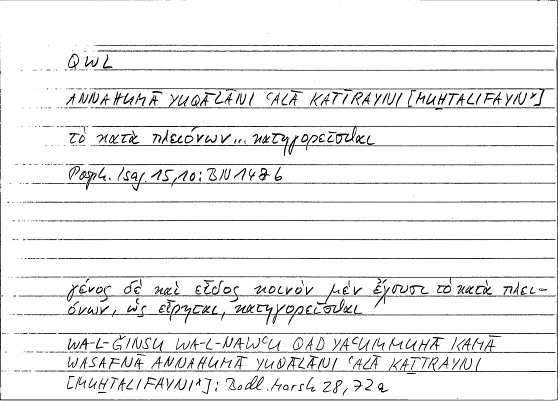 QWL
ANNAHUMĀ YUQĀLĀNI ʿALĀ KAṮĪRAYNI [MUḪTALIFAYN*]
τὸ κατὰ πλειόνων... κατηγορεῖσθαι
Porph. Isag. 15,10; BN 148 b
γένος δὲ καὶ εἶδος κοινὸν μὲν ἔχουσι τὸ κατὰ πλει-
όνων, ὡς εἴρηται, κατηγορεῖσθαι
WA-L-ǦINSU WA-L-NAWʿU QAD YAʿUMMUHĀ KAMĀ
WASAFNĀ ANNAHUMĀ YUQĀLĀNI ʿALĀ KAṮĪRAYNI
[MUḪTALIFAYNI*]; Bodl. Marsh 28, 72a